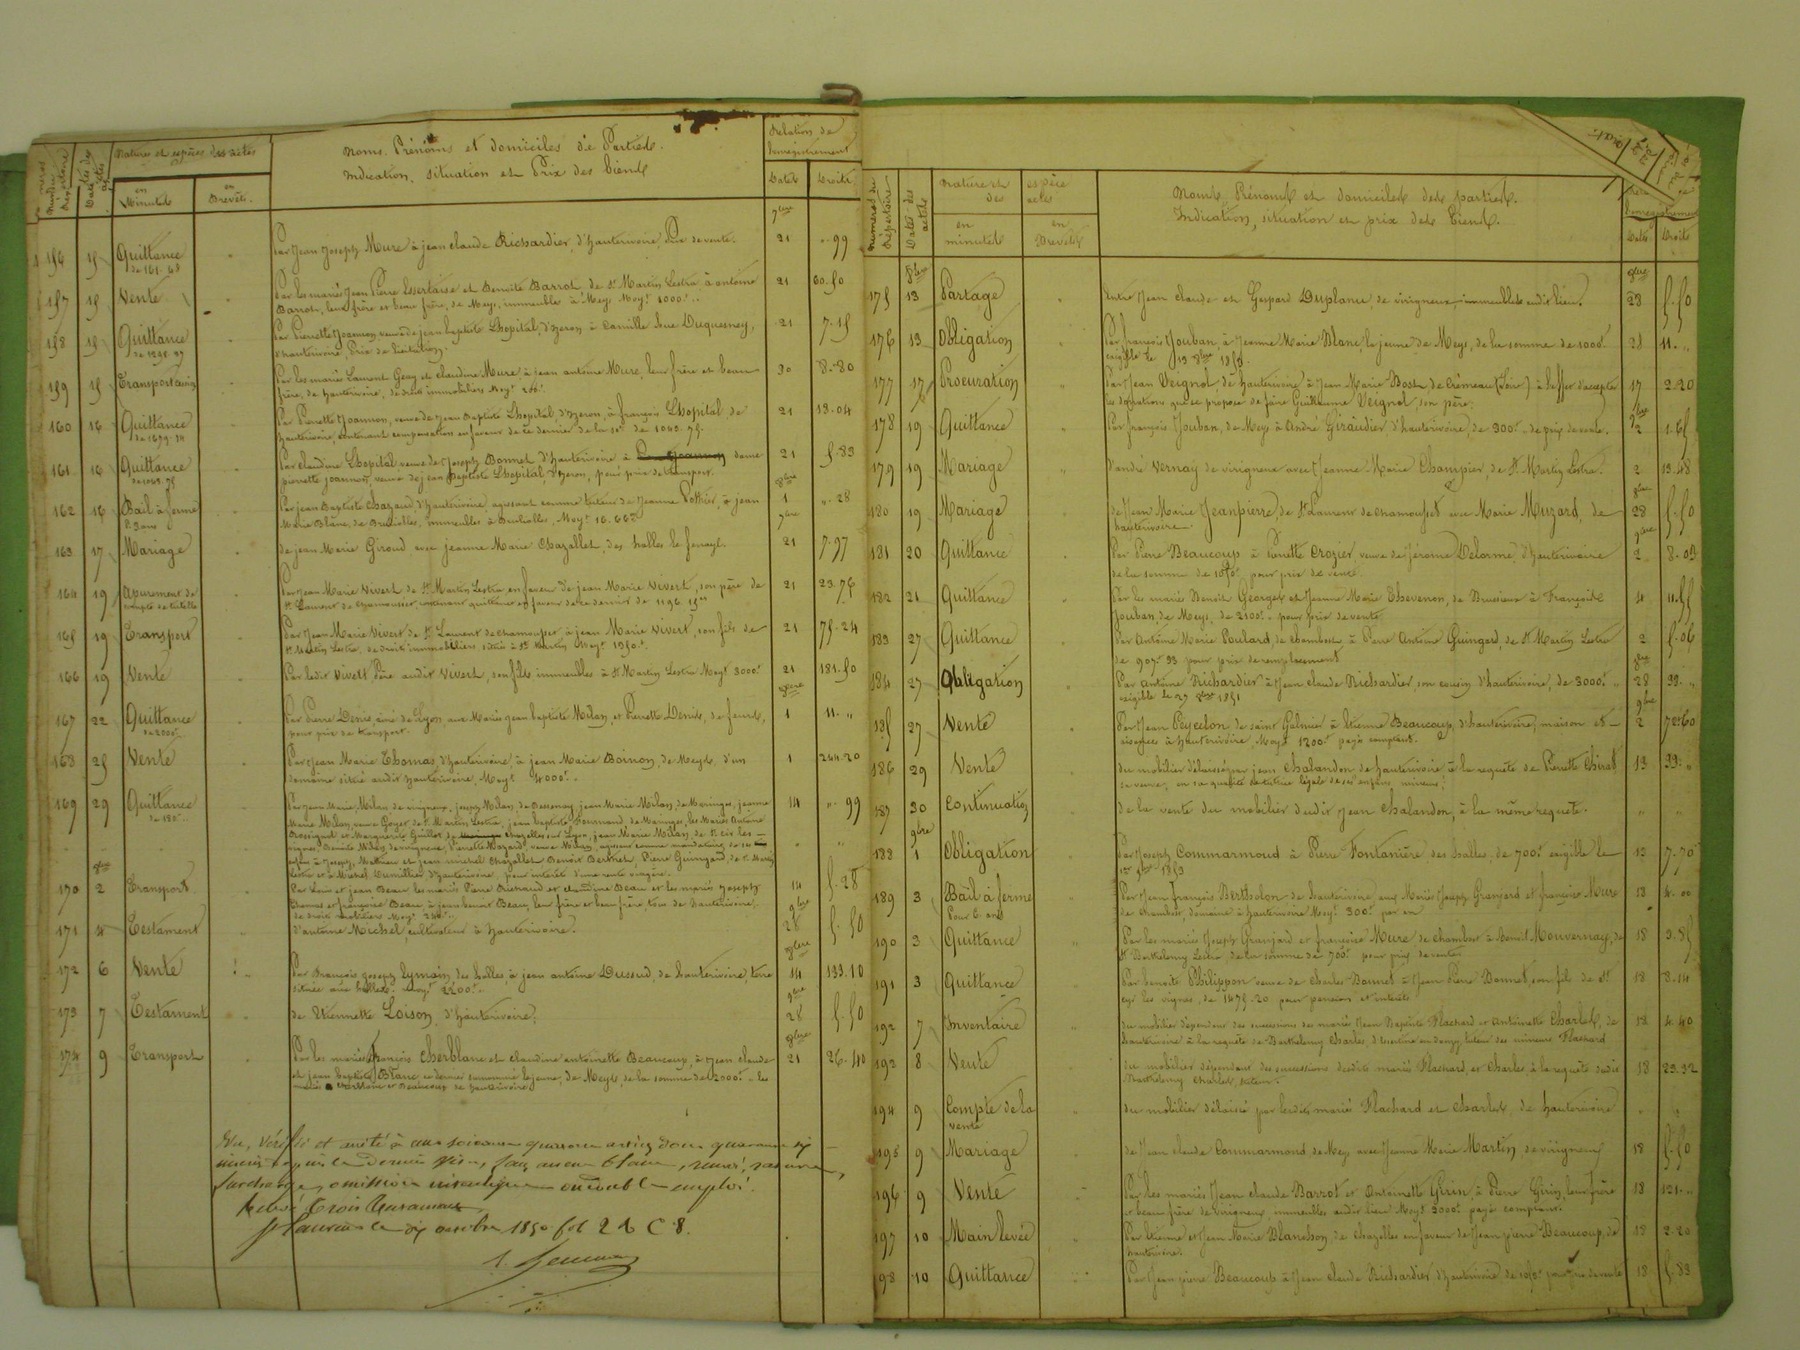 numéros du Répertoire
Dates des actes
Natures et espèces des actes
en Minutes
en Brevets.
Noms. Prénoms et domiciles de Parties.
Indication, situation et Prix des biens
Relation de l'enregistrement
Dates
Droits
7bre
156 15 Quittance de 161. 68 Par Jean Joseph Mure à jean claude Richardier, d'hauterivoire, Prix de vente. 21 " 99
157 15 Vente Par les mariés Jean Pierre Essertaise et Benoite Barrot, de St Martin Lestra à antoine 21 60.50
Barrot, leur frère et beau frère, de Meys, immeubles à Meys Moyt 1000f..
158 15 Quittance Par Pierrette Joannon veuve de jean baptiste Lhopital, d'Yzeron à Camille Duquesney, 21 7.15
d'hauterivoire, Prix de licitation.
159 15 Transport Par les mariés Laurent Geny et claudine Mure à jean antoine Mure, leur frère et beau 30 8.80
frère, de hauterivoire, de droits immobiliers Moyt 200f.
160 16 Quittance de 1679. 14 Par Pierrette Joannon, veuve de Jean Baptiste Lhopital, d'Yzeron, à françois Lhopital de 21 18.04
hauterivoire, contenant compensation en faveur de ce dernier de la se de 1043. 75.
161 16 Quittance Par claudine Lhopital veuve de Joseph Bonnet d'hauterivoire à dame 21 5.83
pierrette joannon, veuve de jean Baptiste Lhopital d'Yzeron, pour prix de transport.
8bre
162 16 Bail à ferme de 9 ans Par jean Baptiste Chazaud d'hauterivoire agissant comme tuteur de Jeanne Pothier, à jean 1 " 28
Marie Blanc, de Brullioles, immeubles à Brullioles, Moyt 16. 66c
7bre
163 17 Mariage de jean Marie Giroud avec jeanne Marie Chazallet, des halles le fenoyl. 21 7.97
164 19 Apurement de compte de tutelle Par Jean Marie Vivert de St Martin Lestra en faveur de jean Marie Vivert, son père de 21 23.76
St Laurent de chamousset, contenant quittance en faveur de ce dernier de 1196. 15c
165 19 Transport Par Jean Marie Vivert de St Laurent de chamousset à jean Marie Vivert, son fils de 21 75.24
St Martin Lestra, de droits immobiliers situés à St Martin Moyt 1350f.
166 19 Vente Par ledit Vivert Père audit Vivert, son fils immeubles à St Martin Lestra Moyt 3000f 21 181.50
8bre
167 22 Quittance de 2000f. Par Pierre Denis, aîné de Lyon, aux Mariés jean baptiste Milan, et Pierrette Denis, de feurs, 1 11."
pour prix de transport.
168 25 Vente Par Jean Marie Thomas, d'hauterivoire, à jean Marie Boinon, de Meys, d'un 1 244.20
domaine situé audit hauterivoire, Moyt 4000f..
169 29 Quittance de 180f.. Par Jean Marie Milan de virigneux, joseph Milan de Bessenay, jean Marie Milan, de Maringes, jeanne 14 " 99
Marie Milan, veuve Goyet de St Martin Lestra, jean baptiste de Maringes, les Mariés Antoine
Rossignol et Marguerite Guillot de chazelles sur Lyon, jean Marie Milan, de St cir les
vignes, Benoite Milan de virigneux, Pierrette Mazard veuve Milan, agissant comme mandataire de ses
Lestra et à Michel Dumillier d'hauterivoire, pour intérêt d'une rente viagère.
8bre
170 2 Transport Par Louis et jean Beau les mariés Pierre et claudine Beau et les mariés joseph 14 5.28
Thomas et françoise Beau à jean benoit Beau, leur frère et beau frère, tous de hauterivoire,
de droits mobiliers Moyt 240f..
9bre
171 4 Testament d'antoine Michel, cultivateur à hauterivoire. 28 5.50
8bre
172 6 Vente Par françois joseph Eymain des halles, à jean antoine Dussud, de hauterivoire, terre 14 133.10
située aux halles. Moyt 2200f..
9bre
173 7 Testament de Etiennette Loison, d'hauterivoire; 28 5.50
8bre
174 9 Transport Par les mariés françois Cherblanc et claudine antoinette Beaucoup, à jean claude 21 26.40
et jean baptiste Blanc ce dernier surnommé lejeune, de Meys, de la somme de 2000f.. les
mariés Cherblanc et Beaucoup de hauterivoire.
Vu, vérifié et arrêté à
depuis le dernier visa, sans aucun blanc, renvoi, rature,
surcharge, omission ou double emploi.
St Laurent le dix octobre 1850 fol 2 C 8.
numéros du Répertoire
Dates des actes
Nature et espèce des actes
en minutes
en Brevets
Noms Prénoms et domiciles des parties.
Indication, situation et prix des biens.
l'enregistrement
Dates
Droits
8bre
175 13 Partage Entre Jean claude et Gaspard Duplany, de virigneux, immeubles audit lieu. 23 5.50
176 13 Obligation Par françois Jouban, à Jeanne Marie Blanc, le jeune de Meys, de la somme de 1000f 21 11."
exigible le 13 8bre
177 17 Procuration Par Jean Veignot de hauterivoire à Jean Marie Bost de Crémeau (Loire) à l'effet d'accepter 17 2.20
les donations que se propose de faire Guillaume Veignot, son père.
9bre
178 19 Quittance Par françois Jouban, de Meys à André Giraudier d'hauterivoire, de 300f. de prix de vente. 2 1.65
179 19 Mariage d'andré Vernay de virigneux avec Jeanne Marie Champier, de St Martin Lestra. 2 13.48
8bre
180 19 Mariage de Jean Marie Jeanpierre, de St Laurent de Chamousset avec Marie Muzard, de 28 5.50
hauterivoire.
9bre
181 20 Quittance Par Pierre Beaucoup à Pierrette Crozier, veuve de Jérôme Delorme, d'hauterivoire 2 8.03
de la somme de pour prix de vente.
182 21 Quittance Par les mariés Benoit Georges et Jeanne Marie Thevenon, de Brussieux à François 4 11.55
Jouban, de Meys, de 2100f.. pour prix de vente.
183 27 Quittance Par Antoine Marie Poulard, de chambost à Pierre Antoine Guingard, de St Martin Lestra 2 5.06
de 907f. 93 pour prix de remplacement
8bre
184 27 Obligation Par Antoine Richardier à Jean claude Richardier, son cousin d'hauterivoire, de 3000f.. 28 33."
exigible le 27 8bre 1851
9bre
185 27 Vente Par Jean Peycelon de saint Galmier à Etienne Beaucoup, d'hauterivoire, maison et 2 72.60
aisances à hauterivoire, Moyt 1200f payés comptant.
186 29 Vente du mobilier délaissé par jean Chalandon de hauterivoire, à la requête de Pierrette Chirat 13 33."
sa veuve, en sa qualité de tutrice légale de ses enfans mineurs.
187 30 Continuation de la vente du mobilier dudit Jean Chalandon, à la même requête. " "
9bre
188 1 Obligation Par Joseph Commarmoud à Pierre Fontanière des halles, de 700f. exigible le 13 7.70
189 3 Bail à ferme Pour 6 ans Par Jean François Berthelon de hauterivoire, aux Mariés Joseph Granjard et françoise Mure 18 4.00
de Chambost, domaine à hauterivoire Moyt 300f. par an
190 3 Quittance Par les mariés Joseph Granjard et françoise Mure de chambost à Benoit Mouvernay, de 18 3.85
St Barthelemy Lestra, de la somme de 700f. pour prix de vente
191 3 Quittance Par benoite Philippon veuve de Charles Bonnet à Jean Pierre Bonnet, son fils de St 18 8.14
cyr les vignes, de 1475. 20 pour pension et intérêts
192 7 Inventaire du mobilier dépendant des successions des mariés Jean Baptiste Flachard et Antoinette Charles, de 18 4.40
hauterivoire à la requête de Barthelemy Charles, tuteur des mineurs Flachard
192 8 Vente du mobilier dépendant des successions desdits mariés Flachard, et Charles, à la requête dudit 18 23.32
Barthelemy Charles, tuteur.
194 9 Compte de la vente du mobilier délaissé par lesdits mariés Flachard et Charles de hauterivoire " "
195 9 Mariage de Jean claude Commarmond de Meys avec Jeanne Marie Martin de virigneux 18 5.50
196 9 Vente Par les mariés Jean claude Barrot et Antoinette Girin, à Pierre Girin, leur frère 18 121."
et beau frère de virigneux immeubles audit lieu Moyt 2000f payés comptant.
197 10 Main levée Par Etienne et Jean Marie Blanchon, de Chazelles en faveur de Jean pierre Beaucoup, de 18 2.20
hauterivoire.
198 10 Quittance Par Jean pierre Beaucoup à Jean Claude Richardier d'hauterivoire de prix de vente 18 5.83